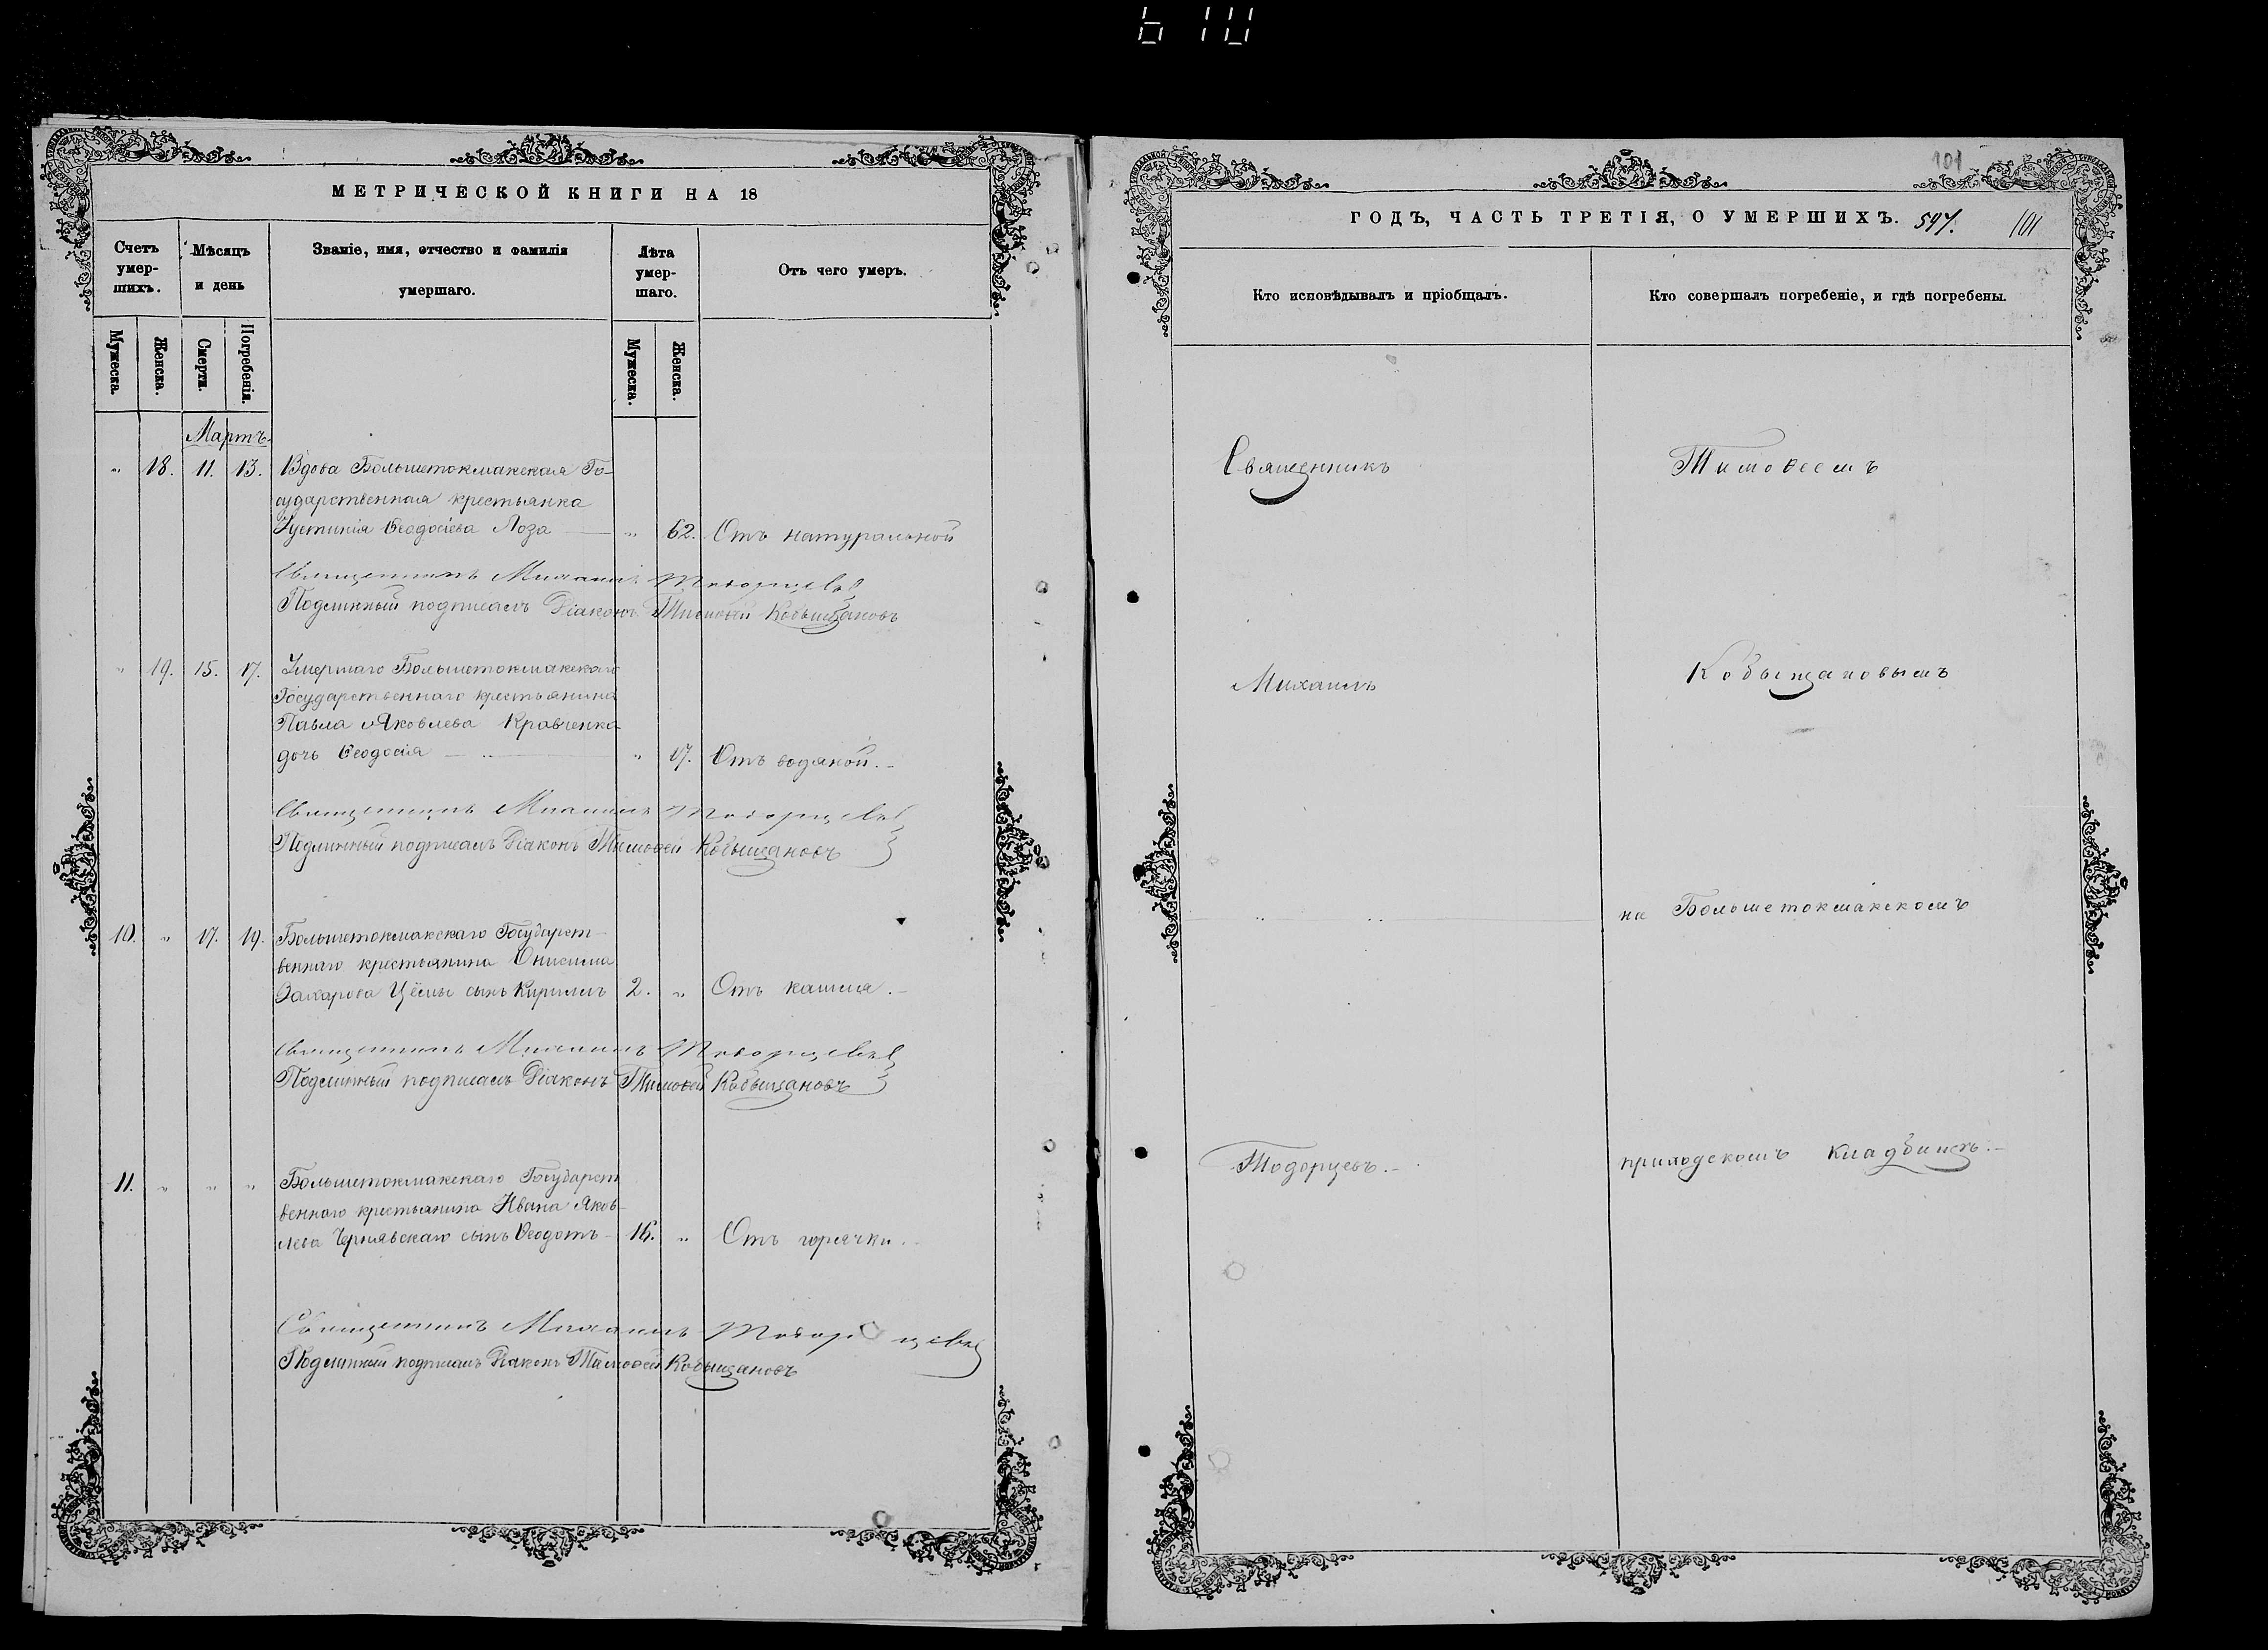 610
МЕТРИЧЕСКОЙ КНИГИ НА 18
Счетъ умер-шихъ.
Мѣсяцъ и день
Званіе, имя, отчество и фамилія умершаго.
Лѣта умер-шаго.
Отъ чего умеръ.
Мужеска.
Женска.
Смерти.
Погребенія.
Мужеска.
Женска.
Мартъ.
" 18. 11. 13. Вдова Большетокмакская Го-
сударственная крестьянка
Іустинія Ѳеодосіева Лоза — " 62. Отъ натуральной
Священникъ Михаилъ Тодорцевъ
Подлинный подписалъ Діаконъ Тимоѳей Кобыщановъ
" 19. 15. 17. Умершаго Большетокмакскаго
Государственнаго крестьянина
Павла Яковлева Кравченка
дочь Ѳеодосія — " 17. Отъ водяной.-
Священникъ Михаилъ Тодорцевъ
Подлинный подписалъ Діаконъ Тимоѳей Кобыщановъ
10. " 17. 19. Большетокмакскаго Государст-
веннаго крестьянина Онисима
Захарова Цёмы сынъ Кириллъ 2. " Отъ кашля.-
Священникъ Михаилъ Тодорцевъ
Подлинный подписалъ Діаконъ Тимоѳей Кобыщановъ
11. " " " Большетокмакскаго Государст
веннаго крестьянина Ивана Яков-
лева Чернявскаго сынъ Ѳеодотъ - 16. " Отъ горячки.-
Священникъ Михаилъ Тодорцевъ
Подлинный подписалъ Діаконъ Тимоѳей Кобыщановъ
101
ГОДЪ, ЧАСТЬ ТРЕТІЯ, О УМЕРШИХЪ. 597. 101
Кто исповѣдывалъ и пріобщалъ.
Кто совершалъ погребеніе, и гдѣ погребены.
Священникъ
Тимоѳеемъ
Михаилъ
Кобыщановымъ
" "
на Большетокмакскомъ
Тодорцевъ.-
приходскомъ кладбищѣ.-